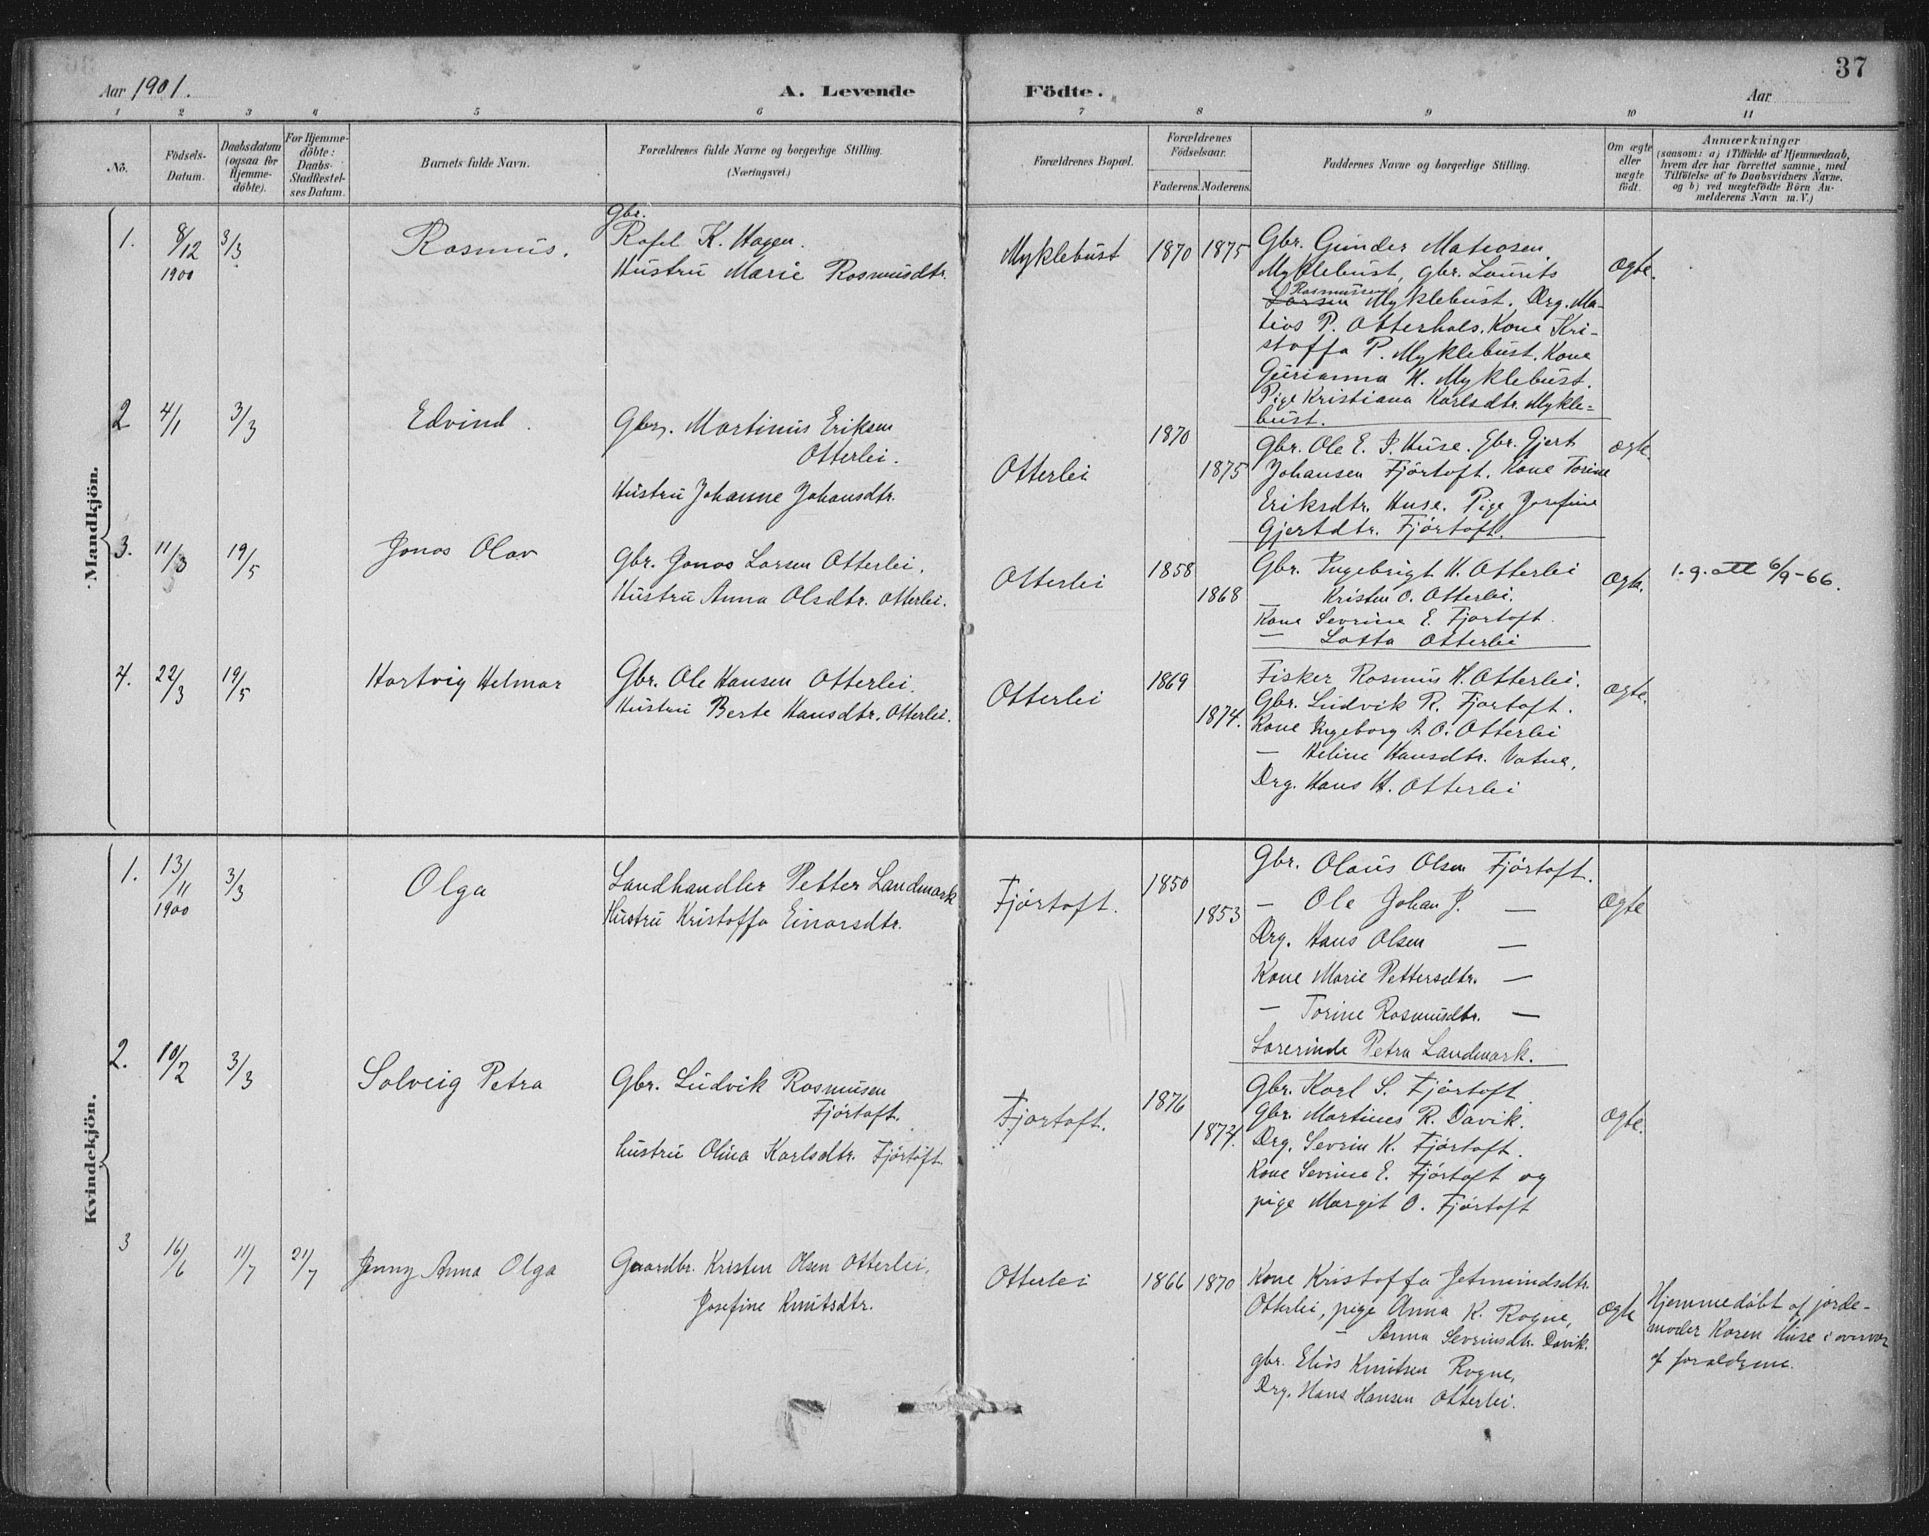 37
Aar 1901.
A. Levende Födte.
Aar
1 2 3 4 5 6 7 8 9 10 11
No.
Födsels-
Datum.
Daabsdatum
(ogsaa for
Hjemme-
döbte).
For Hjemme-
döbte:
Daabs-
Stadfæstel-
ses Datum.
Barnets fulde Navn.
Forældrenes fulde Navne og borgerlige Stilling.
(Næringsvei.)
Forældrenes Bopæl.
Forældrenes
Födselsaar.
Faderens. Moderens.
Faddernes Navne og borgerlige Stilling.
Om ægte
eller
uægte
födt.
Anmærkninger
(saasom: a) i Tilfælde af Hjemmedaab,
hvem der har forrettet samme, med
Tilföielse af to Daabsvidners Navne,
og b) ved uægtefödte Börn An-
melderens Navn m. V.)
Mandkjön.
1.
8/12
1900
3/3
Rasmus.
Gbr.
Rafel K. Hagen.
Hustru Marie Rasmusdtr.
Myklebust
1870 1875
Gbr. Gunder Matiasen
Myklebust, gbr. Laurits
Rasmussen
Larsen Myklebust. Drg. Ma-
tias P. Otterhals. Kone Kri-
stoffa P. Myklebust. Kone
Gurianna H. Myklebust.
Pige Kristiana Karlsdtr. Mykle-
bust.
Ægte.
2
4/1
3/3
Edvind.
Gbr. Martinus Eriksen
Otterlei.
Hustru Johanne Johansdtr.
Otterlei
1870
1875
Gbr. Ole E. P. Huse. Gbr. Gjert
Johansen Fjörtoft. Kone Torine
Eriksdtr. Huse. Pige Josefine
Gjertdtr. Fjörtoft.
Ægte.
3.
11/3
19/5
Jonas Olav
Gbr. Jonas Larsen Otterlei.
Hustru Anna Olsdtr. Otterlei.
Otterlei
1858
1868
Gbr. Ingebrigt H. Otterlei
— Kristen O. Otterlei.
Kone Sevrine E. Fjörtoft.
— Lotta Otterlei
Ægte.
1. g. att 6/9-66.
4.
22/3
19/5
Hartvig Helmar
Gbr. Ole Hansen Otterlei.
Hustru Berte Hansdtr. Otterlei.
Otterlei
1869
1874.
Fisker Rasmus H. Otterlei.
Gbr. Ludvik R. Fjortoft.
Kone Ingeborg A. O. Otterlei
— Heline Hansdtr. Vatne.
Drg. Hans H. Otterlei
Ægte.
Kvindekjön.
1.
13/11
1900
3/3
Olga
Landhandler Petter Landmark
Hustru Kristoffa Einarsdtr.
Fjörtoft.
1850
1853
Gbr. Olaus Olsen Fjörtoft.
— Ole Johan P. —
Drg. Hans Olsen —
Kone Marie Pettersdtr. —
— Torine Rasmusdtr. —
Lærerinde Petra Landmark.
Ægte
2.
10/2
3/3
Solveig Petra
Gbr. Ludvik Rasmusen
Fjörtoft.
hustru Olina Karlsdtr. Fjörtoft.
Fjortoft.
1876
1877.
Gbr. Karl S. Fjörtoft.
Gbr. Martines R. Davik.
Drg. Sevrin K. Fjörtoft.
Kone Sevrine E. Fjörtoft og
pige Margit O. Fjörtoft
Ægte.
3
16/6
11/7
21/7
Jenny Anna Olga
Gaardbr. Kristen Olsen Otterlei,
Josefine Knutsdtr.
Otterlei
1866 1870
Kone Kristoffa Jetmundsdtr.
Otterlei, pige Anna K. Rogne,
— Anna Sevrinsdtr. Davik.
gbr. Elias Knutsen Rogne,
Drg. Hans Hansen Otterlei.
Ægte
Hjemmedöbt af jorde-
moder Karen Huse i overvær
af forældrene.